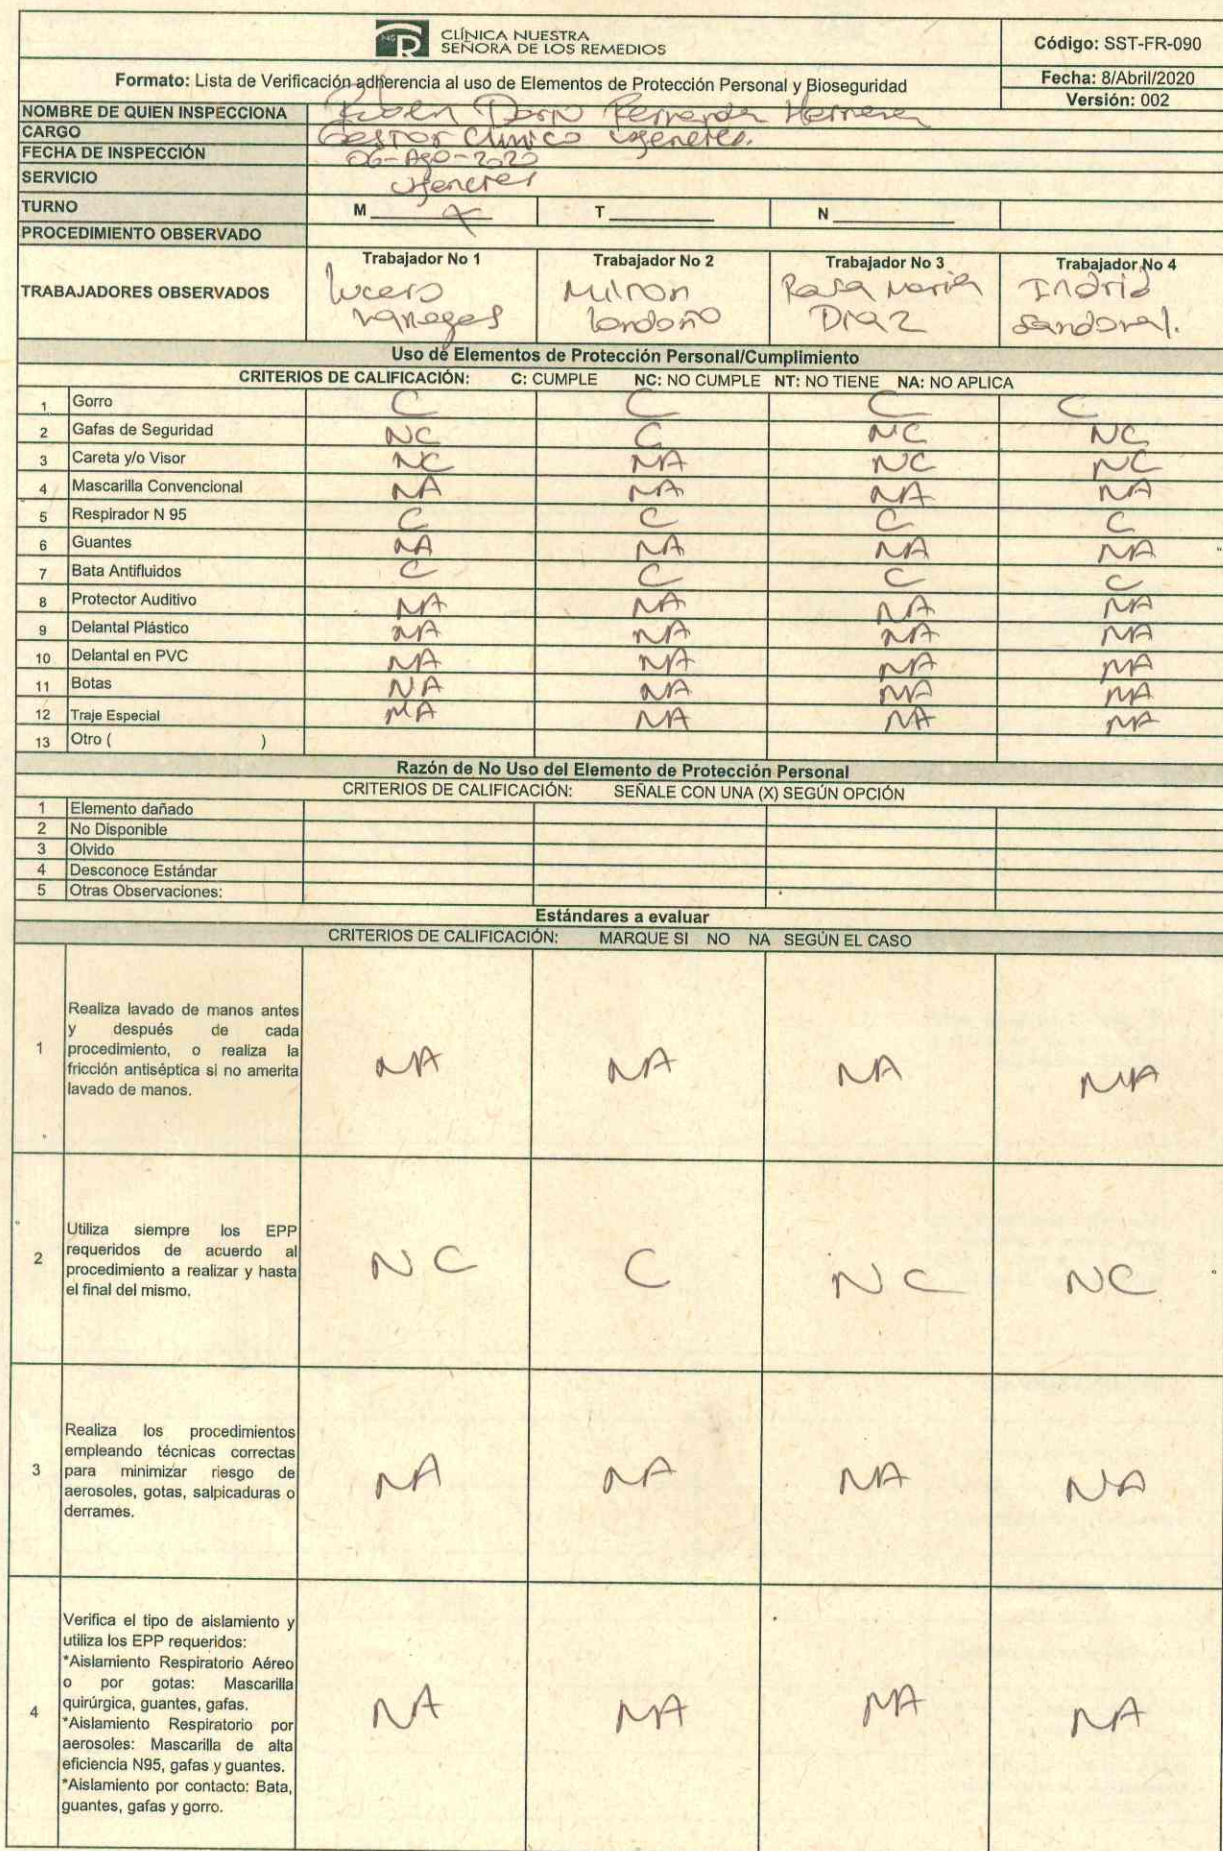 CLÍNICA NUESTRA
SEÑORA DE LOS REMEDIOS
Código: SST-FR-090
Formato: Lista de Verificación adherencia al uso de Elementos de Protección Personal y Bioseguridad
Fecha: 8/Abril/2020
Versión: 002
NOMBRE DE QUIEN INSPECCIONA Herrera
CARGO Gestor Clinico
FECHA DE INSPECCIÓN 06-Ago-2020
SERVICIO
TURNO M X T N
PROCEDIMIENTO OBSERVADO
TRABAJADORES OBSERVADOS
Trabajador No 1 Trabajador No 2 Trabajador No 3 Trabajador No 4
Lucero Milron Rosa Maria Indrid
Vanegas Londoño Diaz Sandoval.
Uso de Elementos de Protección Personal/Cumplimiento
CRITERIOS DE CALIFICACIÓN: C: CUMPLE NC: NO CUMPLE NT: NO TIENE NA: NO APLICA
1 Gorro C C C C
2 Gafas de Seguridad NC C NC NC
3 Careta y/o Visor NC NA NC NC
4 Mascarilla Convencional NA NA NA NA
5 Respirador N 95 C C C C
6 Guantes NA NA NA NA
7 Bata Antifluidos C C C C
8 Protector Auditivo NA NA NA NA
9 Delantal Plástico NA NA NA NA
10 Delantal en PVC NA NA NA NA
11 Botas NA NA NA NA
12 Traje Especial NA NA NA NA
13 Otro ( )
Razón de No Uso del Elemento de Protección Personal
CRITERIOS DE CALIFICACIÓN: SEÑALE CON UNA (X) SEGÚN OPCIÓN
1 Elemento dañado
2 No Disponible
3 Olvido
4 Desconoce Estándar
5 Otras Observaciones:
Estándares a evaluar
CRITERIOS DE CALIFICACIÓN: MARQUE SI NO NA SEGÚN EL CASO
Realiza lavado de manos antes
y después de cada
1 procedimiento, o realiza la
fricción antiséptica si no amerita
lavado de manos.
NA NA NA NA
Utiliza siempre los EPP
2 requeridos de acuerdo al
procedimiento a realizar y hasta
el final del mismo.
NC C NC NC
Realiza los procedimientos
empleando técnicas correctas
3 para minimizar riesgo de
aerosoles, gotas, salpicaduras o
derrames.
NA NA NA NA
Verifica el tipo de aislamiento y
utiliza los EPP requeridos:
*Aislamiento Respiratorio Aéreo
o por gotas: Mascarilla
4 quirúrgica, guantes, gafas.
*Aislamiento Respiratorio por
aerosoles: Mascarilla de alta
eficiencia N95, gafas y guantes.
*Aislamiento por contacto: Bata,
guantes, gafas y gorro.
NA NA NA NA